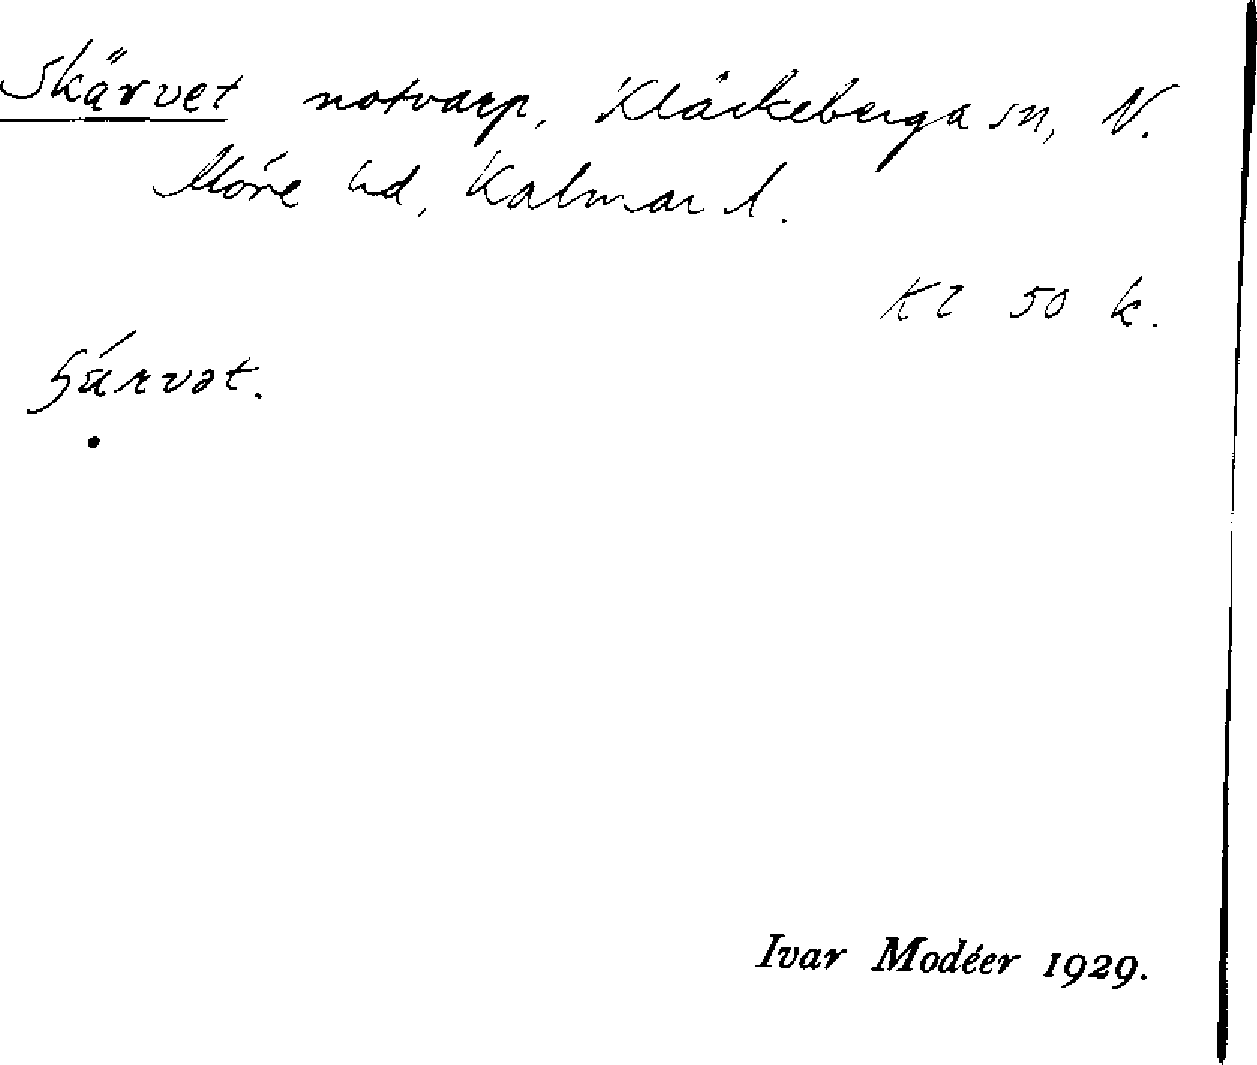 Skärvet notvarp, Kläckeberga sn, N.
Möre hd, Kalmar l.
Kl 50 k.
Ivar Modéer 1929.